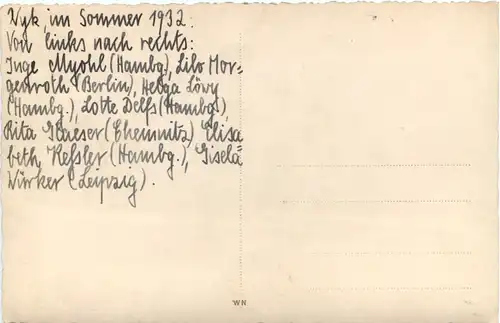 Wyk im Sommer 1932:
Von links nach rechts:
Inge Myohl (Hambg.), Lilo Mor-
genroth (Berlin), Helga Löwy
(Hambg.), Lotte Delfs (Hambg.),
Rita Glaeser (Chemnitz) Elisa
beth Keßler (Hambg.), Gisela
Würker (Leipzig).
WN